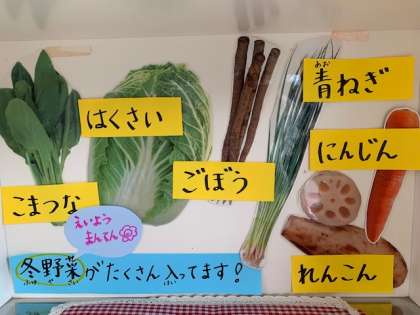 はくさい
青ねぎ
あお
ごぼう
にんじん
こまつな
えいよう
まんてん
れんこん
冬野菜がたくさん入ってます!
ふゆ や さい はい